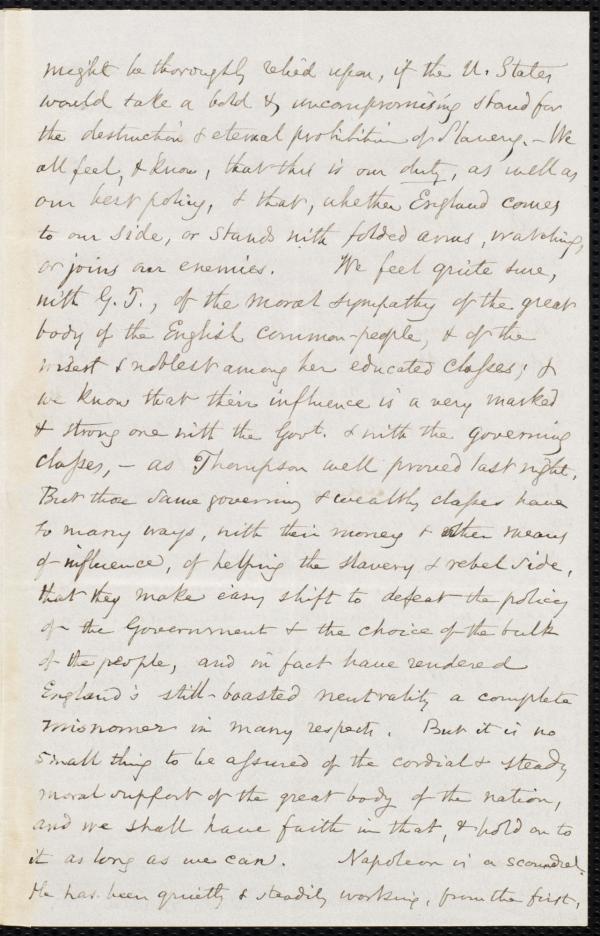 might be thoroughly relied upon, if the U. States
would take a bold & uncompromising stand for
the destruction & eternal prohibition of Slavery. – We
all feel, & know, that this is our duty, as well as
our best policy, & that, whether England comes
to our side, or stands with folded arms, watching,
or joins our enemies. We feel quite sure,
with G. T., of the moral sympathy of the great
body of the English common-people, & of the
wisest & noblest among her educated classes; &
we know that their influence is a very marked
& strong one with the Govt. & with the governing
classes, – as Thompson well proved last night.
But those same governing & wealthy classes have
so many ways, with their money & other means
of influence, of helping the slavery & rebel side,
that they make easy shift to defeat the policy
of the Government & the choice of the bulk
of the people, and in fact have rendered
England's still-boasted neutrality a complete
misnomer in many respects. But it is no
small thing to be assured of the cordial & steady
moral support of the great body of the nation,
and we shall have faith in that, & hold on to
it as long as we can. Napoleon is a scoundrel.
He has been quietly & steadily working, from the first,